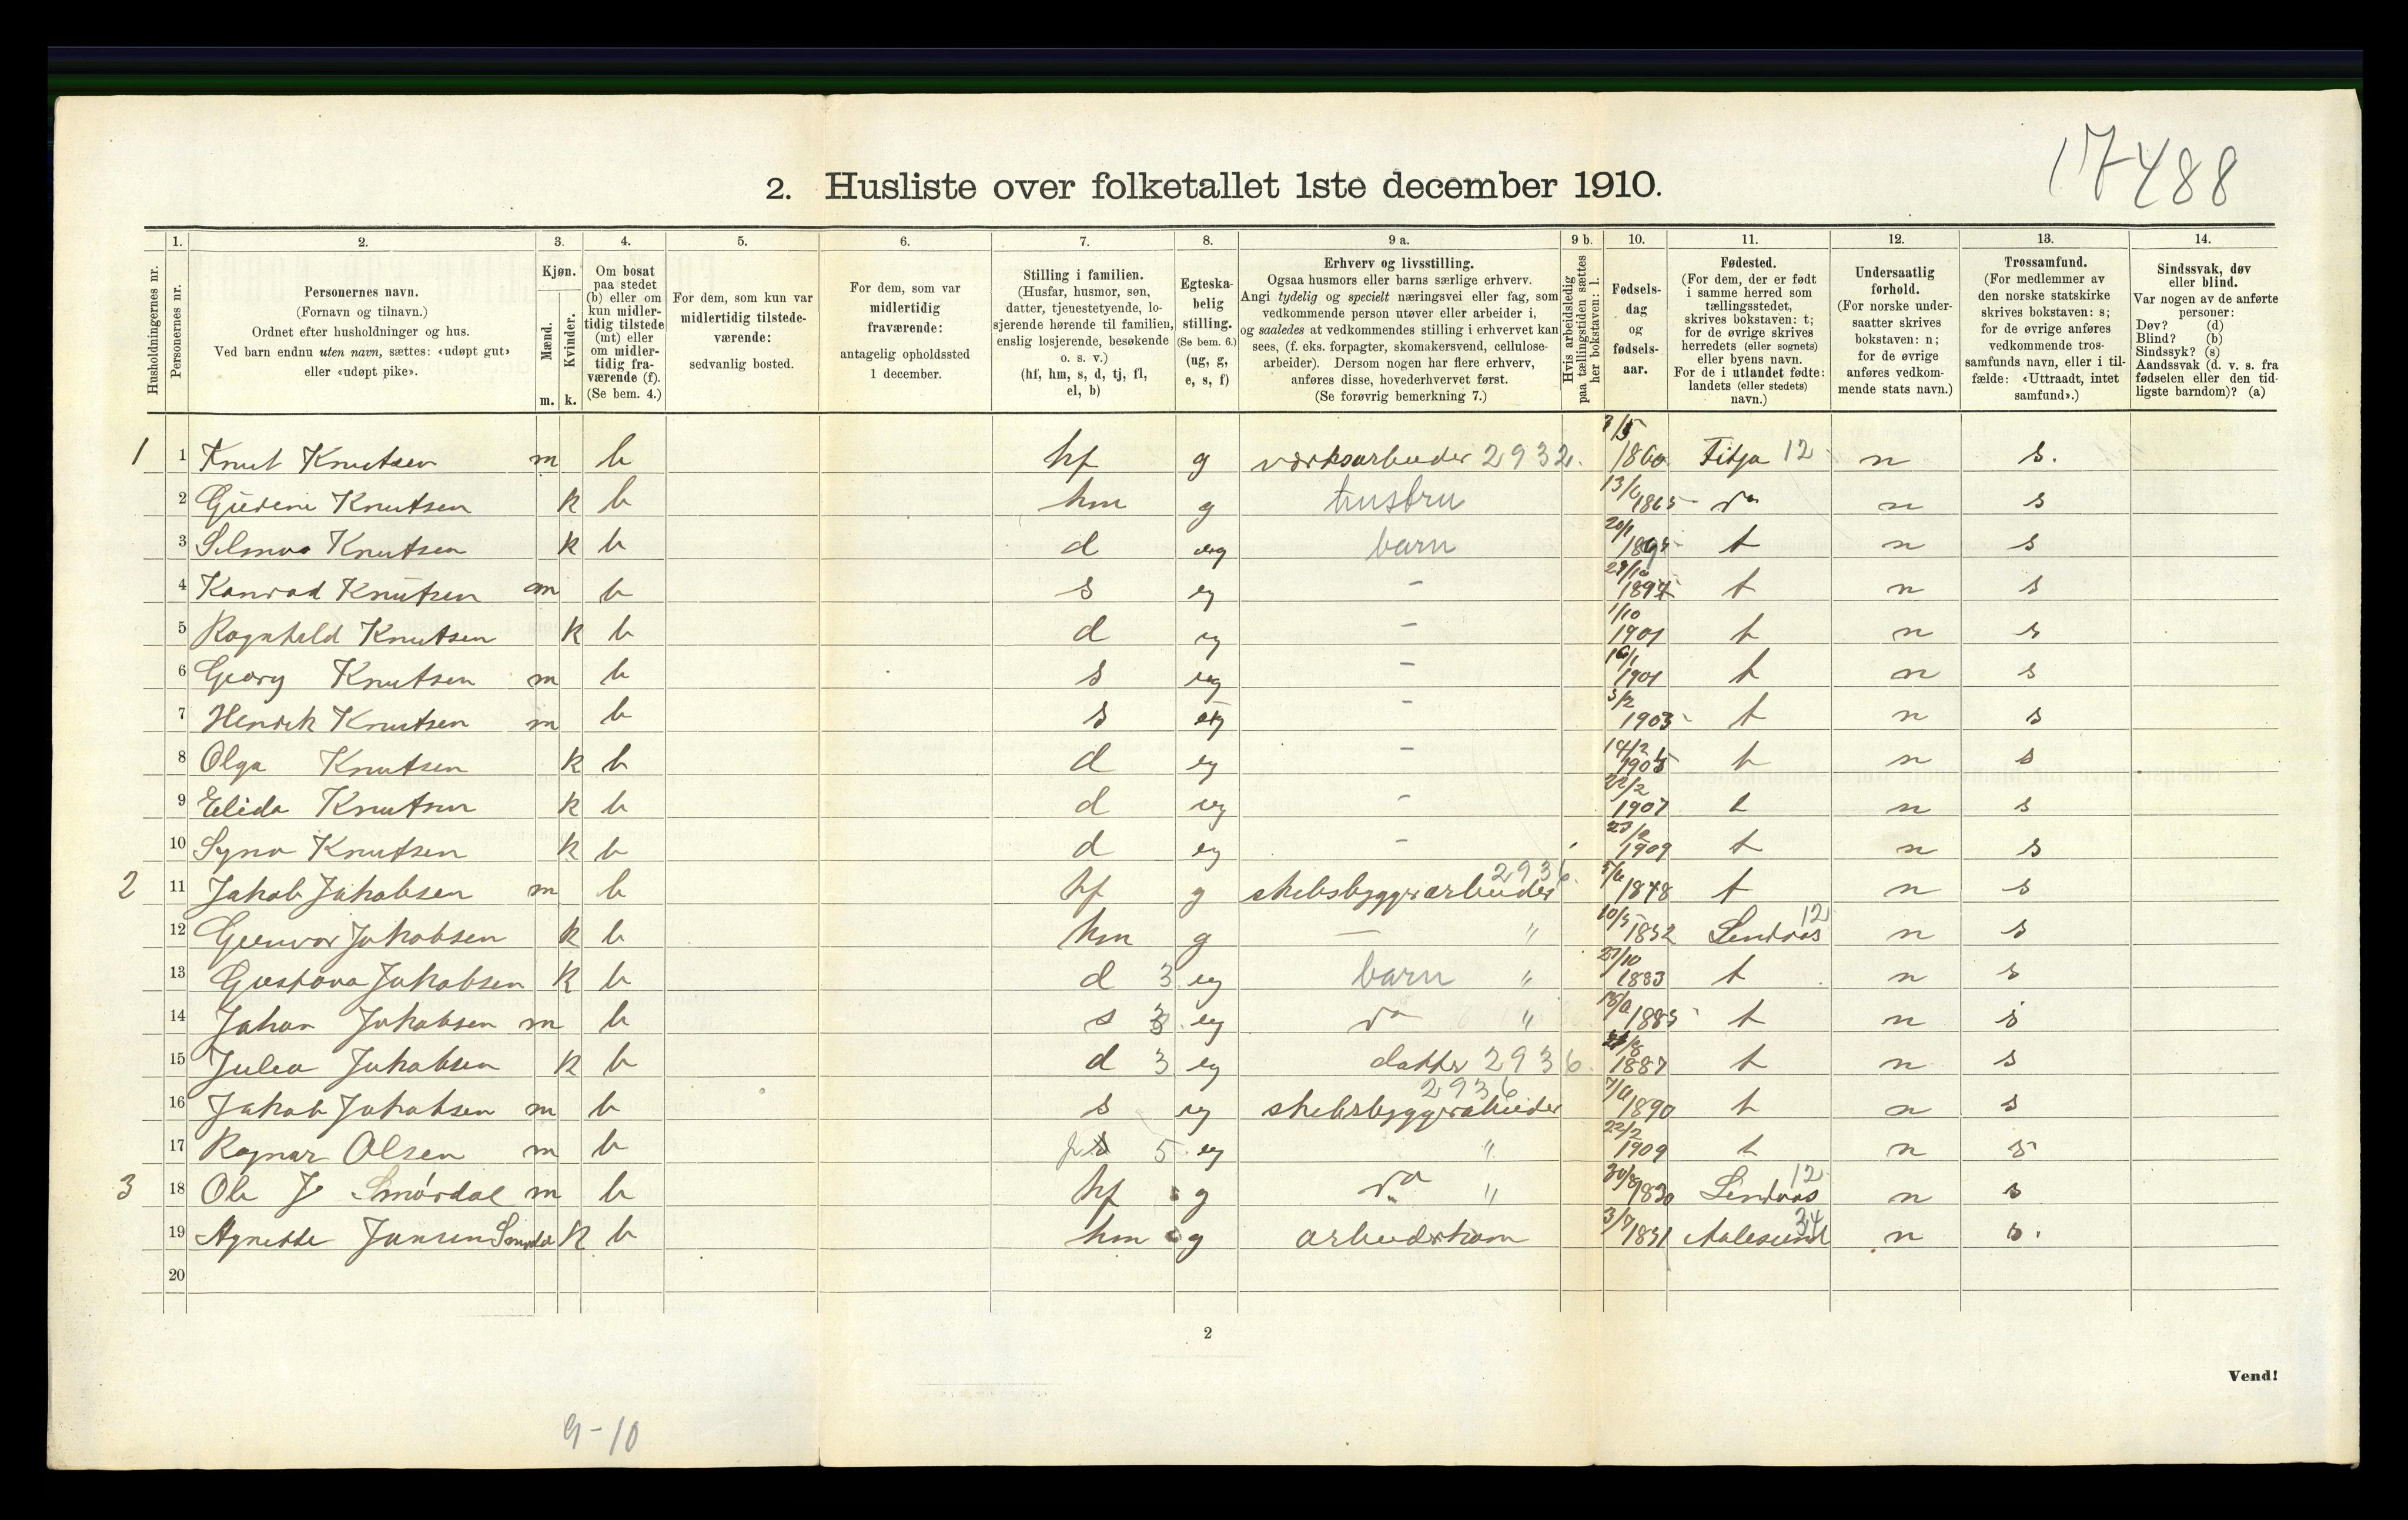 17488
2. Husliste over folketallet 1ste december 1910.
Husholdningernes nr.
1. Personernes nr.
2. Personernes navn.
(Fornavn og tilnavn.)
Ordnet efter husholdninger og hus.
Ved barn endnu uten navn, sættes: «udøpt gut»
eller «udøpt pike».
3. Kjøn.
Mænd. Kvinder.
m. k.
4. Om bosat
paa stedet
(b) eller om
kun midler-
tidig tilstede
(mt) eller
om midler-
tidig fra-
værende (f).
(Se bem. 4.)
5. For dem, som kun var
midlertidig tilstede-
værende:
sedvanlig bosted.
6. For dem, som var
midlertidig
fraværende:
antagelig opholdssted
1 december.
7. Stilling i familien.
(Husfar, husmor, søn,
datter, tjenestetyende, lo-
sjerende hørende til familien,
enslig losjerende, besøkende
o. s. v.)
(hf, hm, s, d, tj, fl,
el, b)
8. Egteska-
belig
stilling.
(Se bem. 6.)
(ug, g,
e, s, f)
9 a. Erhverv og livsstilling.
Ogsaa husmors eller barns særlige erhverv.
Angi tydelig og specielt næringsvei eller fag, som
vedkommende person utøver eller arbeider i,
og saaledes at vedkommendes stilling i erhvervet kan
sees, (f. eks. forpagter, skomakersvend, cellulose-
arbeider). Dersom nogen har flere erhverv,
anføres disse, hovederhvervet først.
(Se forøvrig bemerkning 7.)
9 b. Hvis arbeidsledig
paa tællingstiden sættes
her bokstaven: l.
10. Fødsels-
dag
og
fødsels-
aar.
11. Fødested.
(For dem, der er født
i samme herred som
tællingsstedet,
skrives bokstaven: t;
for de øvrige skrives
herredets (eller sognets)
eller byens navn.
For de i utlandet fødte:
landets (eller stedets)
navn.)
12. Undersaatlig
forhold.
(For norske under-
saatter skrives
bokstaven: n;
for de øvrige
anføres vedkom-
mende stats navn.)
13. Trossamfund.
(For medlemmer av
den norske statskirke
skrives bokstaven: s;
for de øvrige anføres
vedkommende tros-
samfunds navn, eller i til-
fælde: «Uttraadt, intet
samfund».)
14. Sindssvak, døv
eller blind.
Var nogen av de anførte
personer:
Døv? (d)
Blind? (b)
Sindssyk? (s)
Aandssvak (d. v. s. fra
fødselen eller den tid-
ligste barndom)? (a)
1 1 Knut Knutsen m b hf g værksarbeider 2932. 1860 Fitja 12 n s.
2 Knutsen k b hm g hustru 13/6 1865 do n s
3 Selma Knutsen k b d ug barn 20/1 t n s
4 Konrad Knutsen m b s ug - t n s
5 Ragnhild Knutsen k b d ug - 1/10 1901 t n s
6 Georg Knutsen m b s ug - 1901 t n s
7 Henrik Knutsen m b s ug - 3/2 1903 t n s
8 Olga Knutsen k b d ug - 14/2 1905 t n s
9 Elida Knutsen k b d ug - 22/2 1907 t n s
10 Knutsen k b d ug - 1909 t n s
2 11 Jakob Jakobsen m b hf g skibsbyggerarbeider 2936. 5/6 1848 t n s
12 Gunvor Jakobsen k b hm g — " 10/5 1852 Lindaas 12 n s
13 Gustava Jakobsen k b d 3 ug barn " 27/10 1883 t n s
14 Johan Jakobsen m b s 3 ug do " 1885 t n s
15 Julia Jakobsen k b d 3 ug datter 2936. 1887 t n s
16 Jakob Jakobsen m b s ug skibsbyggerarbeider 2936 1890 t n s
17 Ragnar Olsen m b 5 ug " 22/2 1909 t n s
3 18 Ole J Smørdal m b hf g do " 1830 Lindaas 12 n s
19 Agnette Jansen k b hm g 3/7 1831 Aalesund 34 n s.
20
2
Vend!
9-10